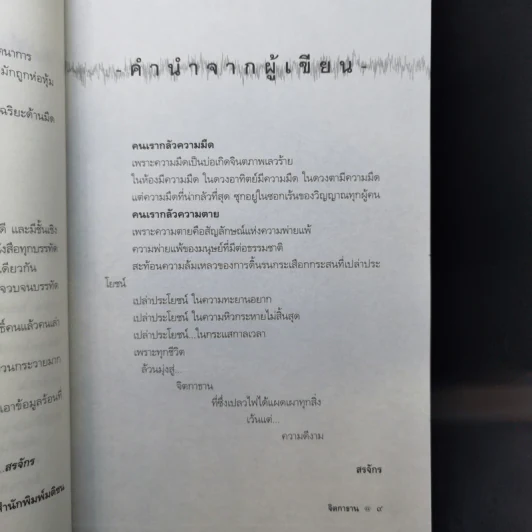 ตนาการ
มักถูกห่อหุ้ม
ฉริยะด้านมืด
ดี และมีชั้นเชิง
งสือทุกบรรทัด
เดียวกัน
จวบจนบรรทัด
ธิ์คนแล้วคนเล่า
วนกระวายมาก
นเอาข้อมูลร้อนที่
...สรจักร
สำนักพิมพ์มติชน
- คำนำจากผู้เขียน -
คนเรากลัวความมืด
เพราะความมืดเป็นบ่อเกิดจินตภาพเลวร้าย
ในห้องมีความมืด ในดวงอาทิตย์มีความมืด ในดวงตามีความมืด
แต่ความมืดที่น่ากลัวที่สุด ซุกอยู่ในซอกเร้นของวิญญาณทุกผู้คน
คนเรากลัวความตาย
เพราะความตายคือสัญลักษณ์แห่งความพ่ายแพ้
ความพ่ายแพ้ของมนุษย์ที่มีต่อธรรมชาติ
สะท้อนความล้มเหลวของการดิ้นรนกระเสือกกระสนที่เปล่าประ
โยชน์
เปล่าประโยชน์ ในความทะยานอยาก
เปล่าประโยชน์ ในความหิวกระหายไม่สิ้นสุด
เปล่าประโยชน์...ในกระแสกาลเวลา
เพราะทุกชีวิต
ล้วนมุ่งสู่...
จิตกาธาน
ที่ซึ่งเปลวไฟได้แผดเผาทุกสิ่ง
เว้นแต่...
ความดีงาม
สรจักร
จิตกาธาน ๏ ๙